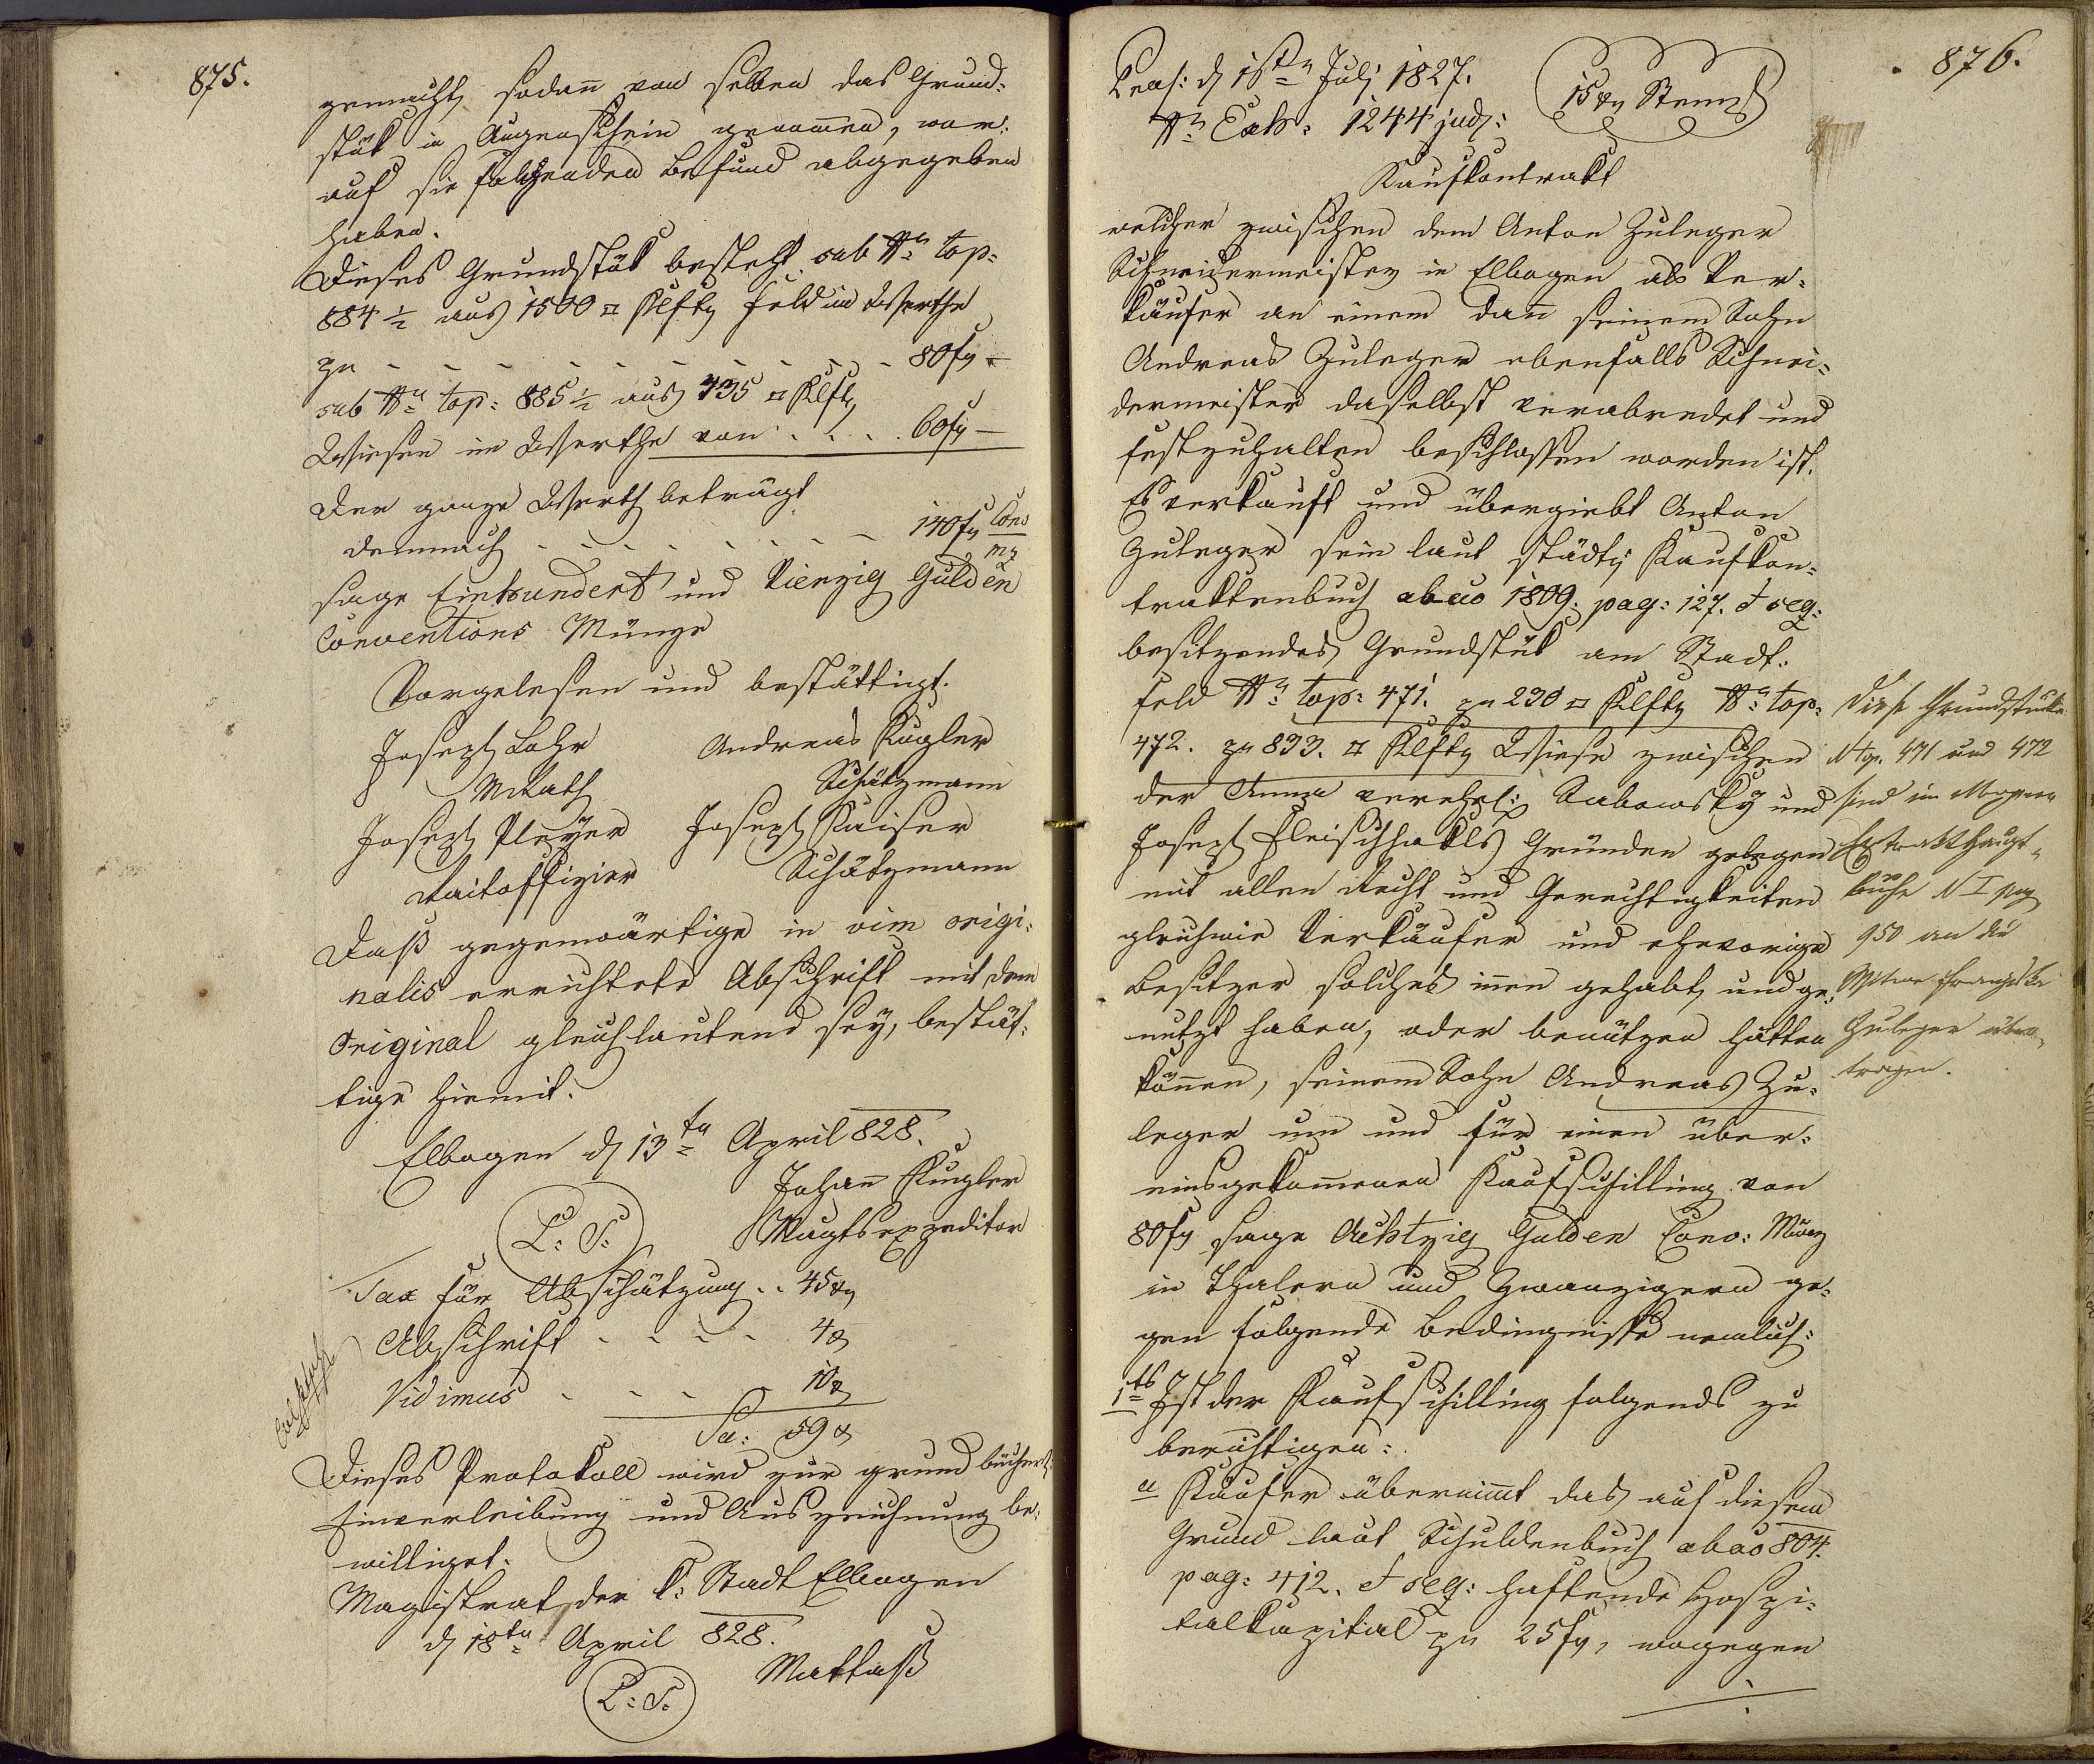 875.
gemacht, sodañ von selben das Grund:
stük in Augenschein genom̃en, wor:
auf sie folgenden Befund abgegeben
haben.
Dieses Grundstük besteht sub Nro top:
884 ½ aus 1500 □ Klftr Feld im Werthe
zu - - - - - - - - - - 80 fr -
sub Nro top: 885 ½ aus 735 □ Klftr
Wiesen im Werthe von . . . . 60 fr -
Der ganze Werth beträgt
demnach - - - - - - - - 140 fr Conv
Mz
sage Einhundert und Vierzig Gulden
Conventions Münze
Vorgelesen und bestättigt.
Joseph Lohr Andreas Kugler
MRath Schätzmann
Joseph Pleyer Joseph Kaiser
Raitoffizier Schätzmann
Daß gegenwärtige in vim origi:
nalis errichtete Abschrift mit dem
Original gleichlautend sey, bestät:
tige hiemit.
Elbogen d 13ten April 828.
Johañ Kugler
L: S: Magtsexpeditor
Tax für Abschätzung . . 45 xr
Abschrift - - - - 4 x
Vidimus - - - - 10 x
Sa: 59 x
Dieses Protokoll wird zur grundbücherl:
Einverleibung und Auszeichnung be:
williget.
Magistrat der k: Stadt Elbogen
d 18ten April 828.
L: S: Mattaß
876.
Praes: d 18ten Juli 1827.
Nro Exh: 1244 jud: 15 xr Stempl
Kaufkontrakt
welcher zwischen dem Anton Zuleger
Schneidermeister in Elbogen als Ver:
käufer an einem dañ seinem Sohn
Andreas Zuleger ebenfalls Schnei:
dermeister daselbst verabredet und
festzuhalten beschlossen worden ist.
Es verkauft und übergiebt Anton
Zuleger sein laut städtn Kaufkon:
traktenbuch ab ao 1809. pag: 127. et seq:
besitzendes Grundstük am Stadt:
feld Nro top: 471. zu 230 □ Klftr Nro top:
472. zu 833. □ Klftr Wiese zwischen
der Anna verehel: Sabowsky und
Joseph Fleischhakls Gründen gelegen
mit allen Recht und Gerechtigkeiten
gleichwie Verkäufer und ehevorige
Besitzer solches iñen gehabt, und ge:
nutzt haben, oder benützen hätten
köñen, seinem Sohn Andreas Zu:
leger um und für einen über:
einsgekom̃enen Kaufschilling von
80 fr sage Achtzig Gulden Conv: Münz
in Thalern und Zwanzigern ge:
gen folgende Bedingnisse nemlich:
1tens Ist der Kaufschilling folgends zu
berichtigen:
a Käufer übernim̃t das auf diesem
Grund laut Schuldenbuch ab ao 804.
pag: 412. et seq: haftende Hospi:
talkapital zu 25 fr, wogegen
Diese Grundstücke
N top. 471 und 472
sind im
Extrakt Haupt-
buche N I pag
950 an die
Witwe Franziska
Zuleger über-
tragen.